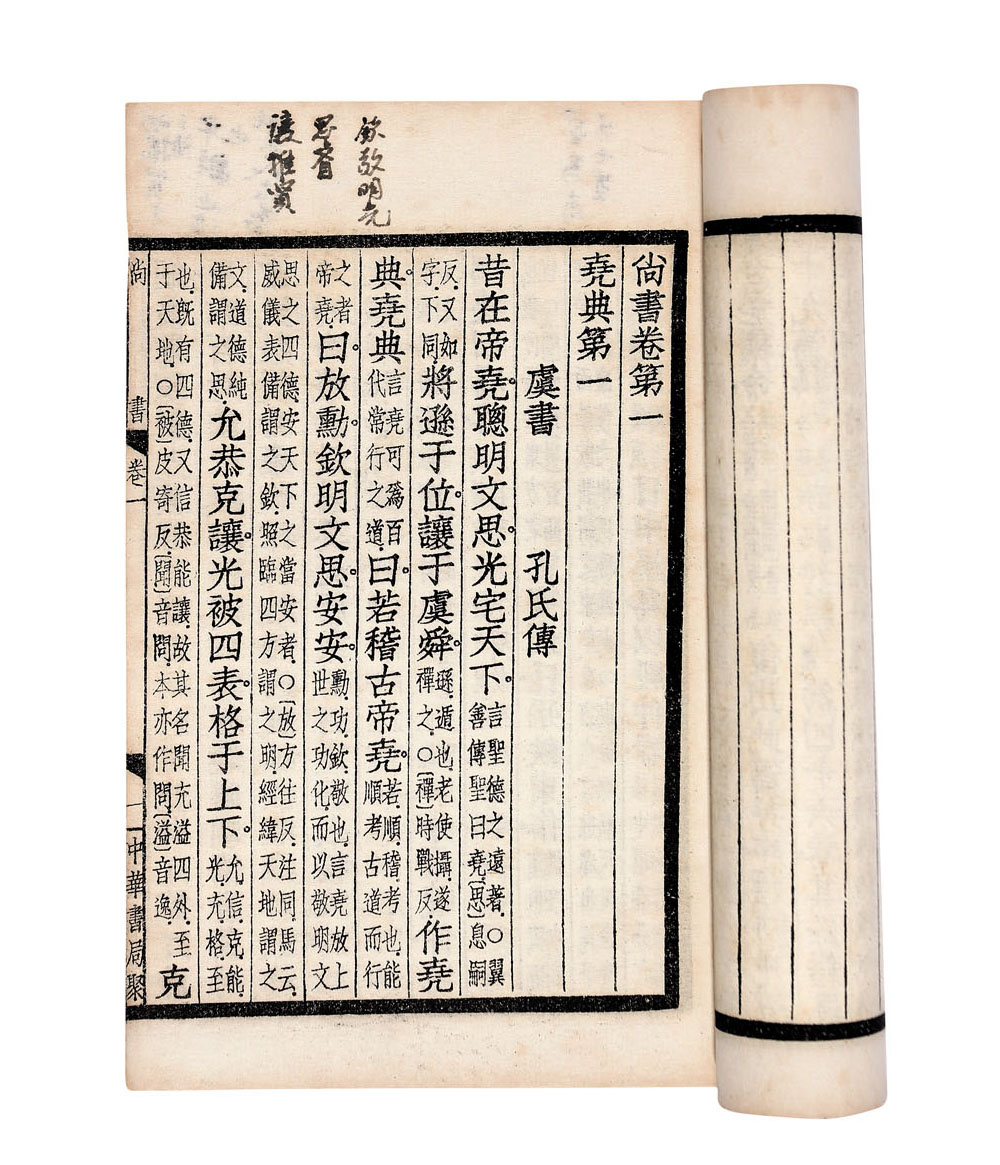 欽敬明
思睿
讓推賢
尙書卷第一
堯典第一
虞書 孔氏傳
昔在帝堯。聰明文思。光宅天下。言聖德之遠著.○翼善傳聖曰堯.[思]息嗣
反.又如字.下同.將遜于位。讓于虞舜。遜.遁也.老使攝.遂禪之.○[禪]時戰反.作堯
典。堯典言堯可爲百代常行之道.曰。若稽古帝堯。若.順.稽.考也.能順考古道而行
之者帝堯.曰放勳。欽明文思安安。勳.功.欽.敬也.言堯放上世之功化.而以敬明文
思之四德.安天下之當安者.○[放]方往反.注同.馬云.威儀表備謂之欽.照臨四方謂之明.經緯天地謂之
文.道德純備謂之思.允恭克讓。光被四表。格于上下。允.信.克.能.光.充.格.至
也.既有四德.又信恭能讓.故其名聞充溢四外.至于天地.○[被]皮寄反.[聞]音問.本亦作問.[溢]音逸.克
尙書 卷一 一 中華書局聚